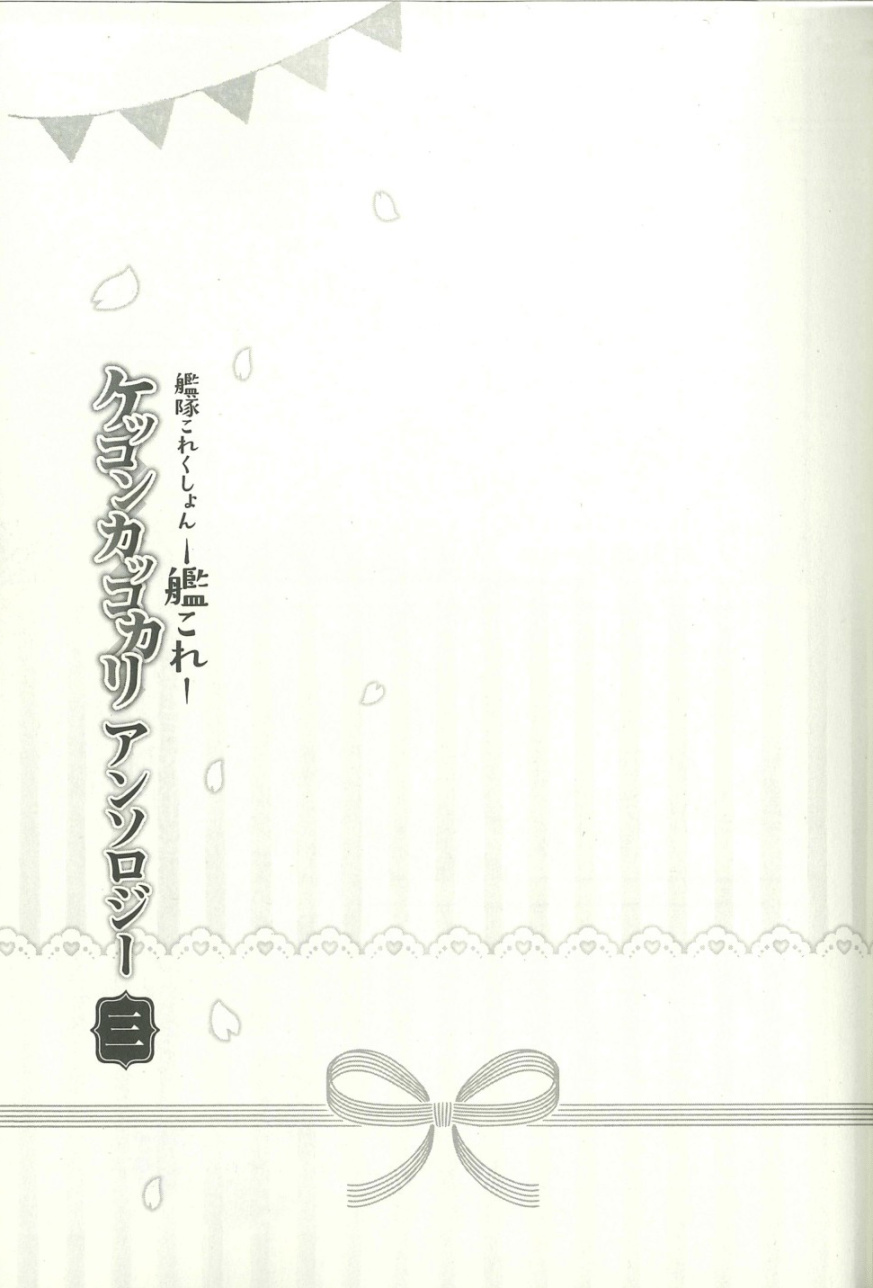 艦隊これくしょん ー艦これー
ケッコンカッコカリ アンソロジー
三